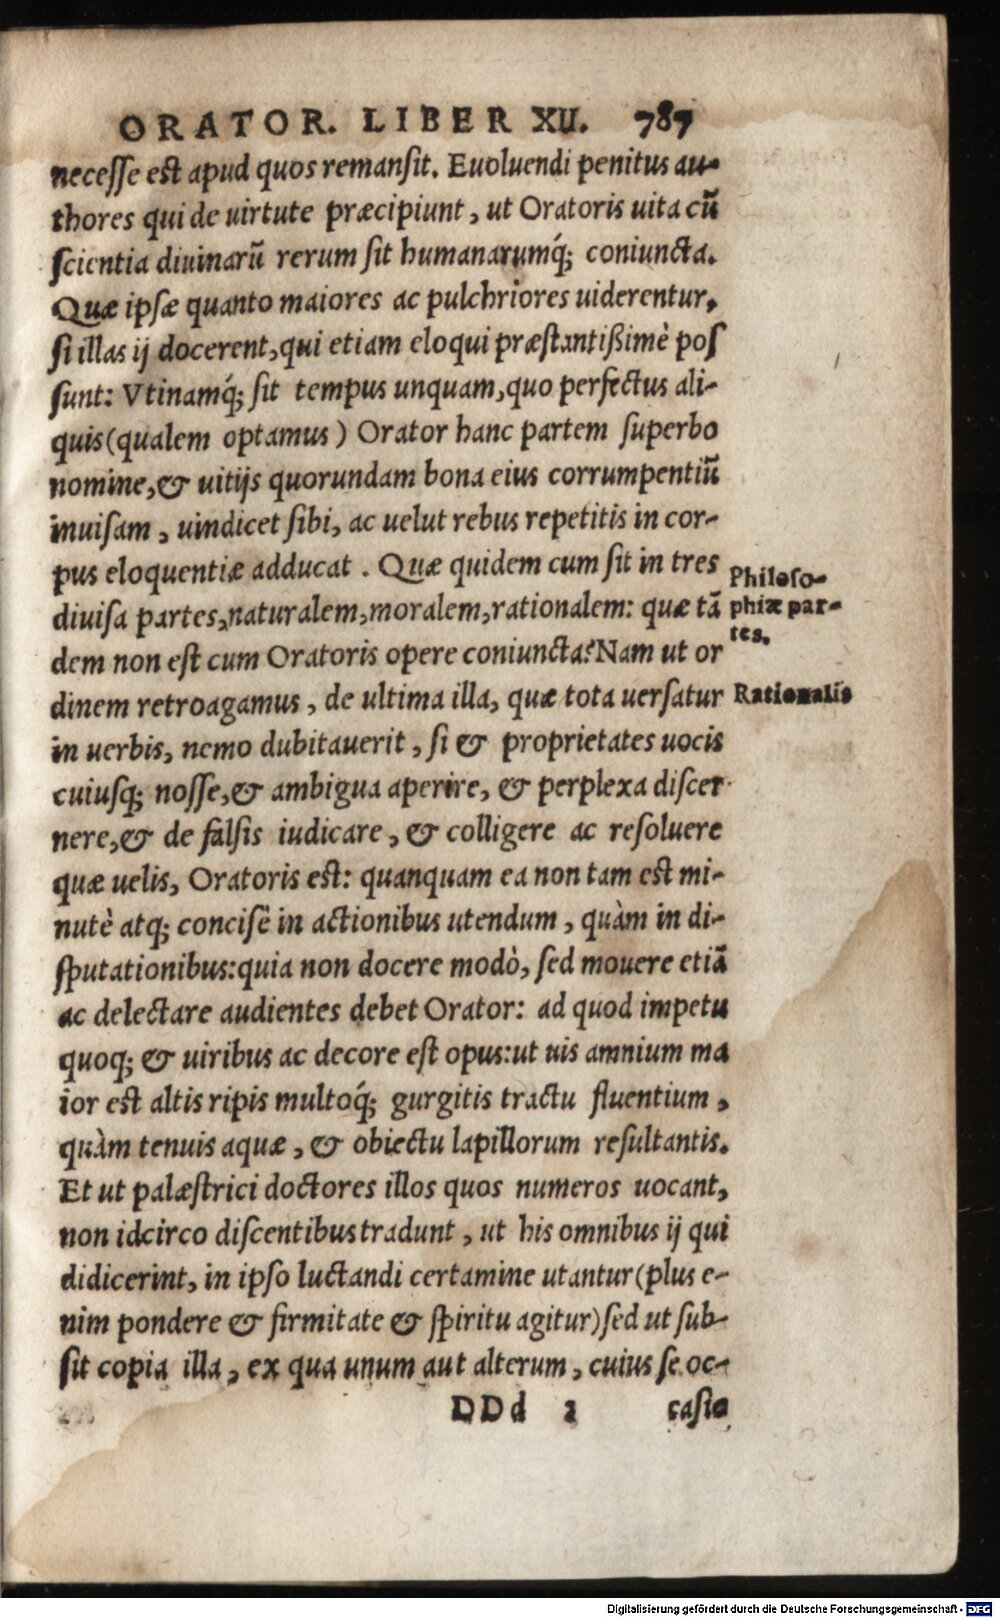 ORATOR. LIBER XII. 787
necesse est apud quos remansit. Euoluendi penitus au-
thores qui de uirtute præcipiunt, ut Oratoris uita cū
scientia diuinarū rerum sit humanarumq́; coniuncta.
Quæ ipsæ quanto maiores ac pulchriores uiderentur,
si illas ij docerent, qui etiam eloqui præstantißimè pos
sunt: Vtinamq́; sit tempus unquam, quo perfectus ali-
quis (qualem optamus) Orator hanc partem superbo
nomine, & uitijs quorundam bona eius corrumpentiū
inuisam, uindicet sibi, ac uelut rebus repetitis in cor-
pus eloquentiæ adducat. Quæ quidem cum sit in tres
diuisa partes, naturalem, moralem, rationalem: quæ tā
dem non est cum Oratoris opere coniuncta? Nam ut or
dinem retroagamus, de ultima illa, quæ tota uersatur
in uerbis, nemo dubitauerit, si & proprietates uocis
cuiusq; nosse, & ambigua aperire, & perplexa discer-
nere, & de falsis iudicare, & colligere ac resoluere
quæ uelis, Oratoris est: quanquam ea non tam est mi-
nutè atq; concisè in actionibus utendum, quàm in di-
sputationibus: quia non docere modò, sed mouere etiā
ac delectare audientes debet Orator: ad quod impetu
quoq; & uiribus ac decore est opus: ut uis amnium ma
ior est altis ripis multoq́; gurgitis tractu fluentium,
quàm tenuis aquæ, & obiectu lapillorum resultantis.
Et ut palæstrici doctores illos quos numeros uocant,
non idcirco discentibus tradunt, ut his omnibus ij qui
didicerint, in ipso luctandi certamine utantur (plus e-
nim pondere & firmitate & spiritu agitur) sed ut sub-
sit copia illa, ex qua unum aut alterum, cuius se oc-
DDd 2 casio
Philoso-
phiæ par-
tes.
Rationalis
Digitalisierung gefördert durch die Deutsche Forschungsgemeinschaft - DFG